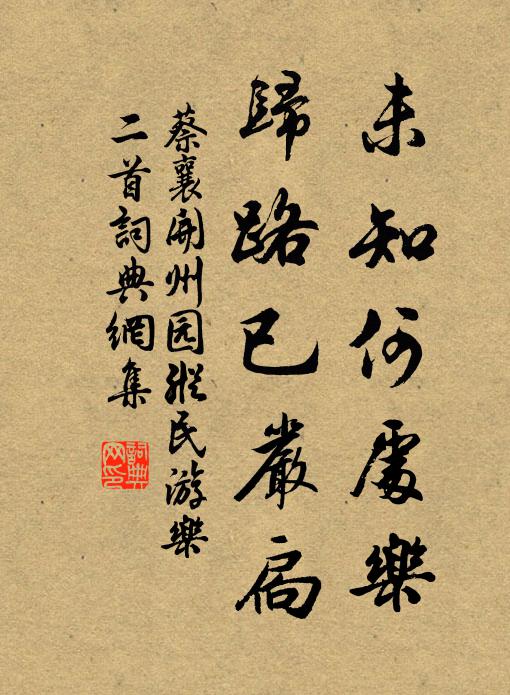 未知何處樂
歸路已嚴扃
蔡襄開州园縱民游樂
二首詞典網集
詞典
网印